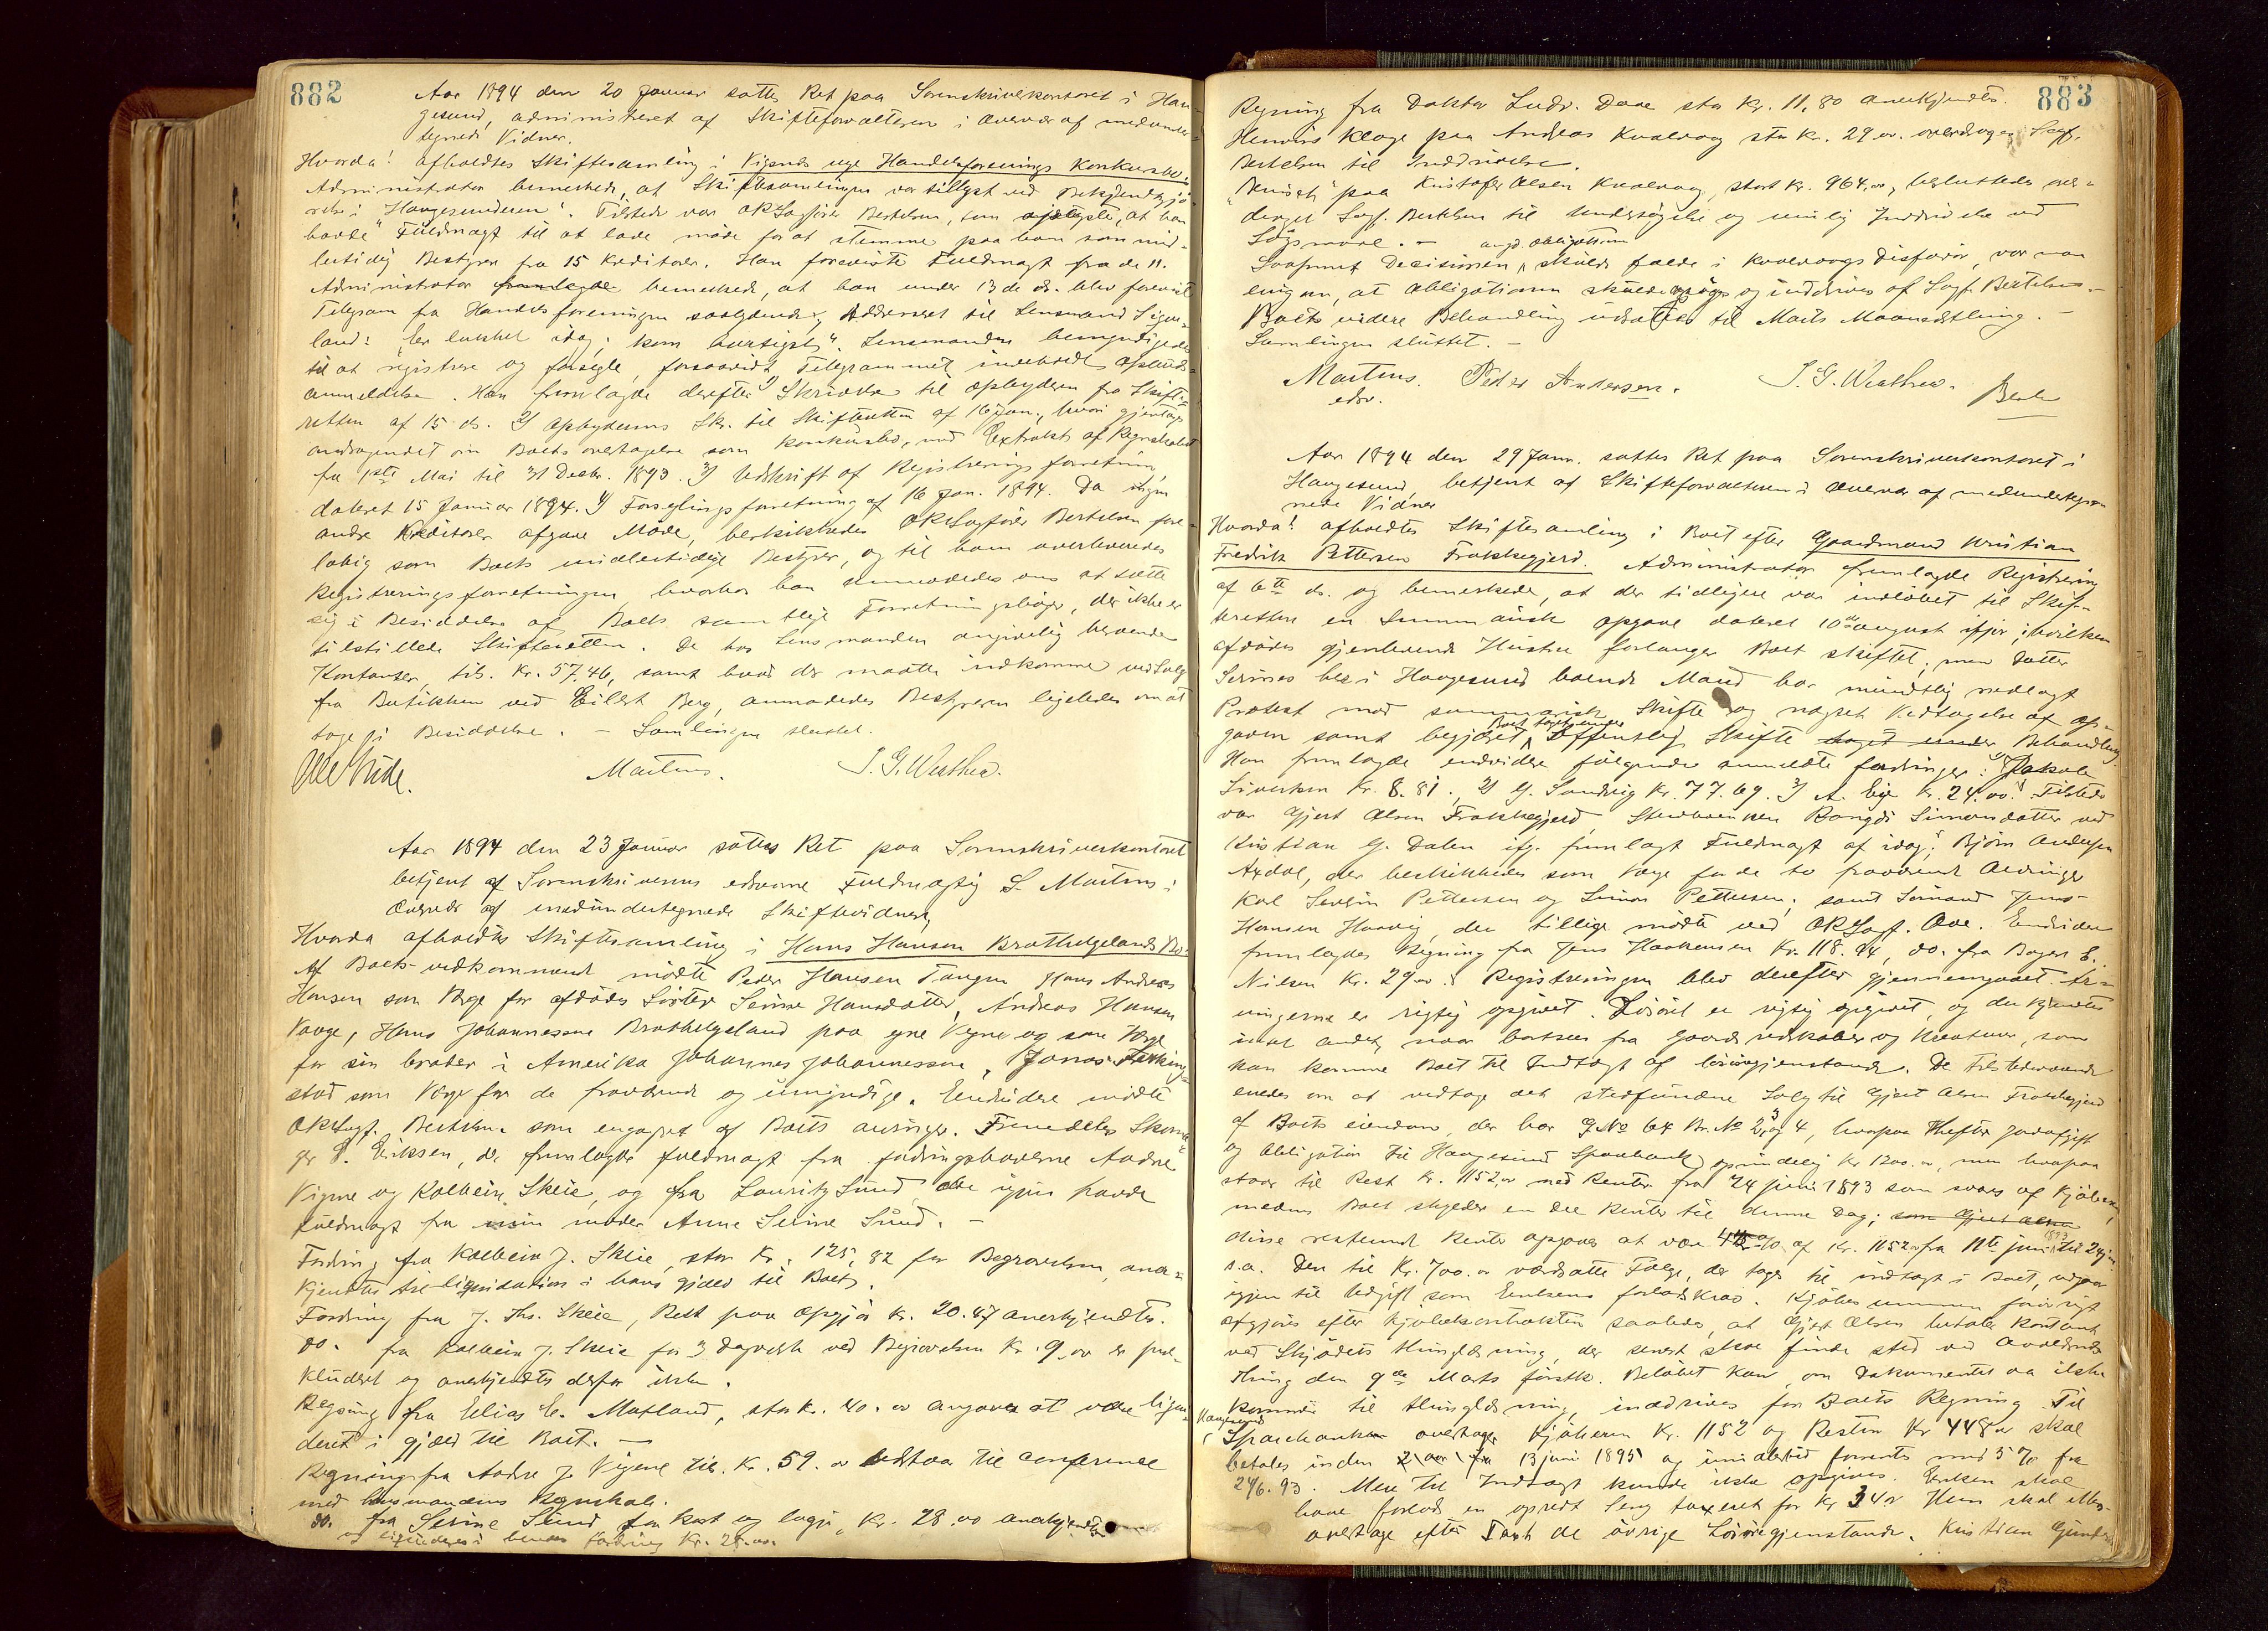 882
Aar 1894 den 20 Januar sattes Ret paa Sorenskriverkontoret i Hau-
gesund, administreret af Skifteforvalteren i Overvær af medunder-
tegnede Vidner.
Hvorda! afholdtes Skiftesamling i Vigsnes nye Handelsforenings Konkursbo.
Administrator bemærkede, at Skiftesamlingen var tillyst ved Bekjendtgjø-
relse i "Haugesunderen". Tilstede var ORSagfører Bertelsen, som oplyste, at han
havde Fuldmagt til at lade møde for at stemme paa ham som mid-
lertidig Bestyrer fra 15 Kreditorer. Han foreviste Fuldmagt fra de 11.
Administrator fremlagde bemærkede, at han under 13de ds. blev forevist
Telegram fra Handelsforeningen saalydende, Adresseret til Lensmand Sigve-
land: "er lukket idag; kom hurtigst". Lensmanden bemyndigedes
til at registrere og forsegle, forsaavidt Telegrammet indeholdt Opbuds-
anmeldelse. Han fremlagde derefter 1) Skrivelse til Opbyderen fra Skifte-
retten af 15 ds. 2) Opbyderens Skr. til Skifteretten af 16 Jan., hvori gjentages
andragendet om Boets overtagelse som Konkursbo, med Extrakt af Regnskabet
fra 1ste Mai til 31 Decbr. 1893. 3) Udskrift af Registreringsforretning,
dateret 15 Januar 1894. 4) Forseglingsforretning af 16 Jan. 1894. Da ingen
andre Kreditorer afgave Møde, beskikkedes ORSagfører Bertelsen fore-
løbig som Boets midlertidige Bestyrer, og til ham overleveredes
Registreringsforretningen hvorhos han anmodedes om at sætte
sig i Besiddelse af Boets samtlige Forretningsbøger, der ikke er
tilstillede Skifteretten. De hos Lensmanden angivelig beroende
Kontanter, tils. Kr. 57.46, samt hvad der maatte indkomme ved Salg
fra Butikken ved Eilert Berg, anmodedes Bestyreren ligeledes om at
tage i Besiddelse. - Samlingen sluttet.
Martens. J. G. Wearthew.
Aar 1894 den 23 Januar sattes Ret paa Sorenskriverkontoret
betjent af Sorenskriverens edsvorne Fuldmægtig S. Martens i
Overvær af medundertegnede Skiftevidner,
Hvorda afholdtes Skiftesamling i Hans Hansen Brathelgelands Bo.
Af Boets vedkommende mødte Peder Hansen Tangen Hans Andreas
Hansen som Verge for afdødes Søster Serine Hansdatter, Andreas Hansen
Vaage, Hans Johannessen Brathelgeland paa egne Vegne og som Verge
for sin broder i Amerika Johannes Johannessen, Jonas
stad som Verge for de fraværende og umyndige. Endvidere mødte
ORSagf. Bertelsen som engageret af Boets arvinger. Fremdeles
ger S. Eriksen, der fremlagde fuldmagt fra fordringshaverne Andre
Vigene og Kolbein Skeie, og fra Lauritz Sund, der igjen havde
Fuldmagt fra sin moder Anne Serine Sund. -
Fordring fra Kolbein J. Skeie, stor Kr. 125,82 for Begravelsen, aner-
kjendtes til liquidation i hans gjeld til Boet.
Fordring fra J. Ths. Skeie, Rest paa Opgjør Kr. 20.47 anerkjendtes.
do. fra Kolbein J. Skeie for 3 dagverk ved Begravelsen Kr. 9.00 er præ-
kluderet og anerkjendtes derfor ikke.
Regning fra Elias E. Matland, stor Kr. 40.00 angaves at være liqvi-
deret i gjæld til Boet. -
Regning fra Andre J. Vigene tils. Kr. 59.00 udstaar til conference
med husmandens Regnskab.
do. fra Serine Sund for Kost og logi, Kr. 28.00 anerkjendtes
og liqvideres i hendes fordring Kr. 28.00.
883
Regning fra Doktor Ludv. Daae stor Kr. 11,80 anerkjendtes.
Henvis Klage paa Andreas Kvalevaag stor Kr. 29.00. overdrages Sagf.
Bertelsen til Inddrivelse.
"Beviset" paa Kristofer Olsen Kvalevaag, stort Kr. 964,00, besluttedes over-
draget Sagf. Bertelsen til Undersøgelse og mulig Inddrivelse ved
Søgsmaal. -
angd. obligationen
Saafremt Decisionen skulde falde i Kvalevaags Disfavør, var me-
ningen, at Obligationen skulde søges og inddrives af Sagf. Bertelsen.
Boets videre Behandling udsattes til Marts Maanedsthing. -
Samlingen sluttet. -
Martens. Peder Andersen. J. G. Wearthew.
edsv.
Aar 1894 den 29 Janr. sattes Ret paa Sorenskriverkontoret i
Haugesund, betjent af Skifteforvalteren i Overvær af medundertegn-
nede Vidner
Hvorda! afholdtes Skiftesamling i Boet efter Gaardmand Kristian
Fredrik Pettersen Frakkegjerd. Administrator fremlagde Registrering
af 6te ds. og bemærkede, at der tidligere var indløbet til Skif-
teretten en Summarisk opgave dateret 10de august ifjor, i hvilken
afdødes gjenlevende Hustru forlanger Boet skiftet; men datter
Serines her i Haugesund boende Mand har mundtlig nedlagt
Protest mod summarisk Skifte og nægtet Vedtagelse af Op-
gaven samt begjæret Boet taget under Offentlig Skifte taget under Behandling.
Han fremlagde endvidere følgende anmeldte fordringer: 1) Jakob
Sivertsen Kr. 8.81. 2) G. Sandvig Kr. 77.69. 3) A. Eie Kr. 24.00. Tilstede
var Gjert Olsen Frakkegjerd, Stervboenken Bangdi Simonsdatter ved
Kristian G. Dalen ifg. fremlagt Fuldmagt af idag; Bjørn Andersen
Axdal, der beskikkedes som Verge for de to fraværende Arvinger
Karl Severin Pettersen og Simon Pettersen; samt Sømand Jens
Hansen Haavig, der tillige mødte ved ORSagf. Aae. Endvidere
fremlagdes Regning fra Jens Haakensen Kr. 118.94, do. fra Bager E.
Nilsen Kr. 29.00. Registreringen blev derefter gjennemgaaet. Ar-
vingerne er rigtig opgivet. Løsøret er rigtig opgivet, og der kjendtes
intet andet, naar bortsees fra Gaardsredskaber og Kreaturer, som
kan komme Boet til Indtægt af løsøregjenstande. De tilstedeværende
enedes om at vedtage det stedfundne Salg til Gjert Olsen Frakkegjerd
af Boets eiendom, der har G.No 64 Br.No 2, 3 og 4, hvorpaa hefter Jordafgift
og Obligation til Haugesund Sparebank oprindelig Kr 1200.00, men hvorpaa
staar til Rest Kr. 1152,00 med Renter fra 24 juni 1893 som svares af Kjøberen,
medens Boet skylder en del Renter til denne Dag; som Gjert Olsen
disse resterende Renter opgaves at være 4% af Kr. 1152 fra 11te juni 1893 til 24 juni
s.a. Den til Kr. 700.00 værdsatte Følge, der tages til indtægt i Boet, udgaar
igjen til Udgift som Enkens forlodskrav. Kjøbesummen forøvrigt
afgjøres efter Kjøbekontrakten saaledes, at Gjert Olsen betaler Kontant
ved Skjødets thinglæsning, der senest skal finde sted ved Avaldsnes
thing den 9de Marts førstk. Beløbet kan, om Dokumentet da ikke
kommer til thinglæsning, inddrives for Boets Regning. Til
Haugesund
Sparebanken overtager Kjøberen Kr. 1152 og Resten Kr 448.00 skal
betales inden 2 aar fra 13 juni 1895 og imidlertid forrentes med 5% fra
24/6. 93. Mere til Indtægt kunde ikke opgives. Enken skal
have forlods en opredt Seng taxeret for Kr 34.00 Hun skal ellers
overtage efter Taxt de øvrige Løsøregjenstande. Kristian